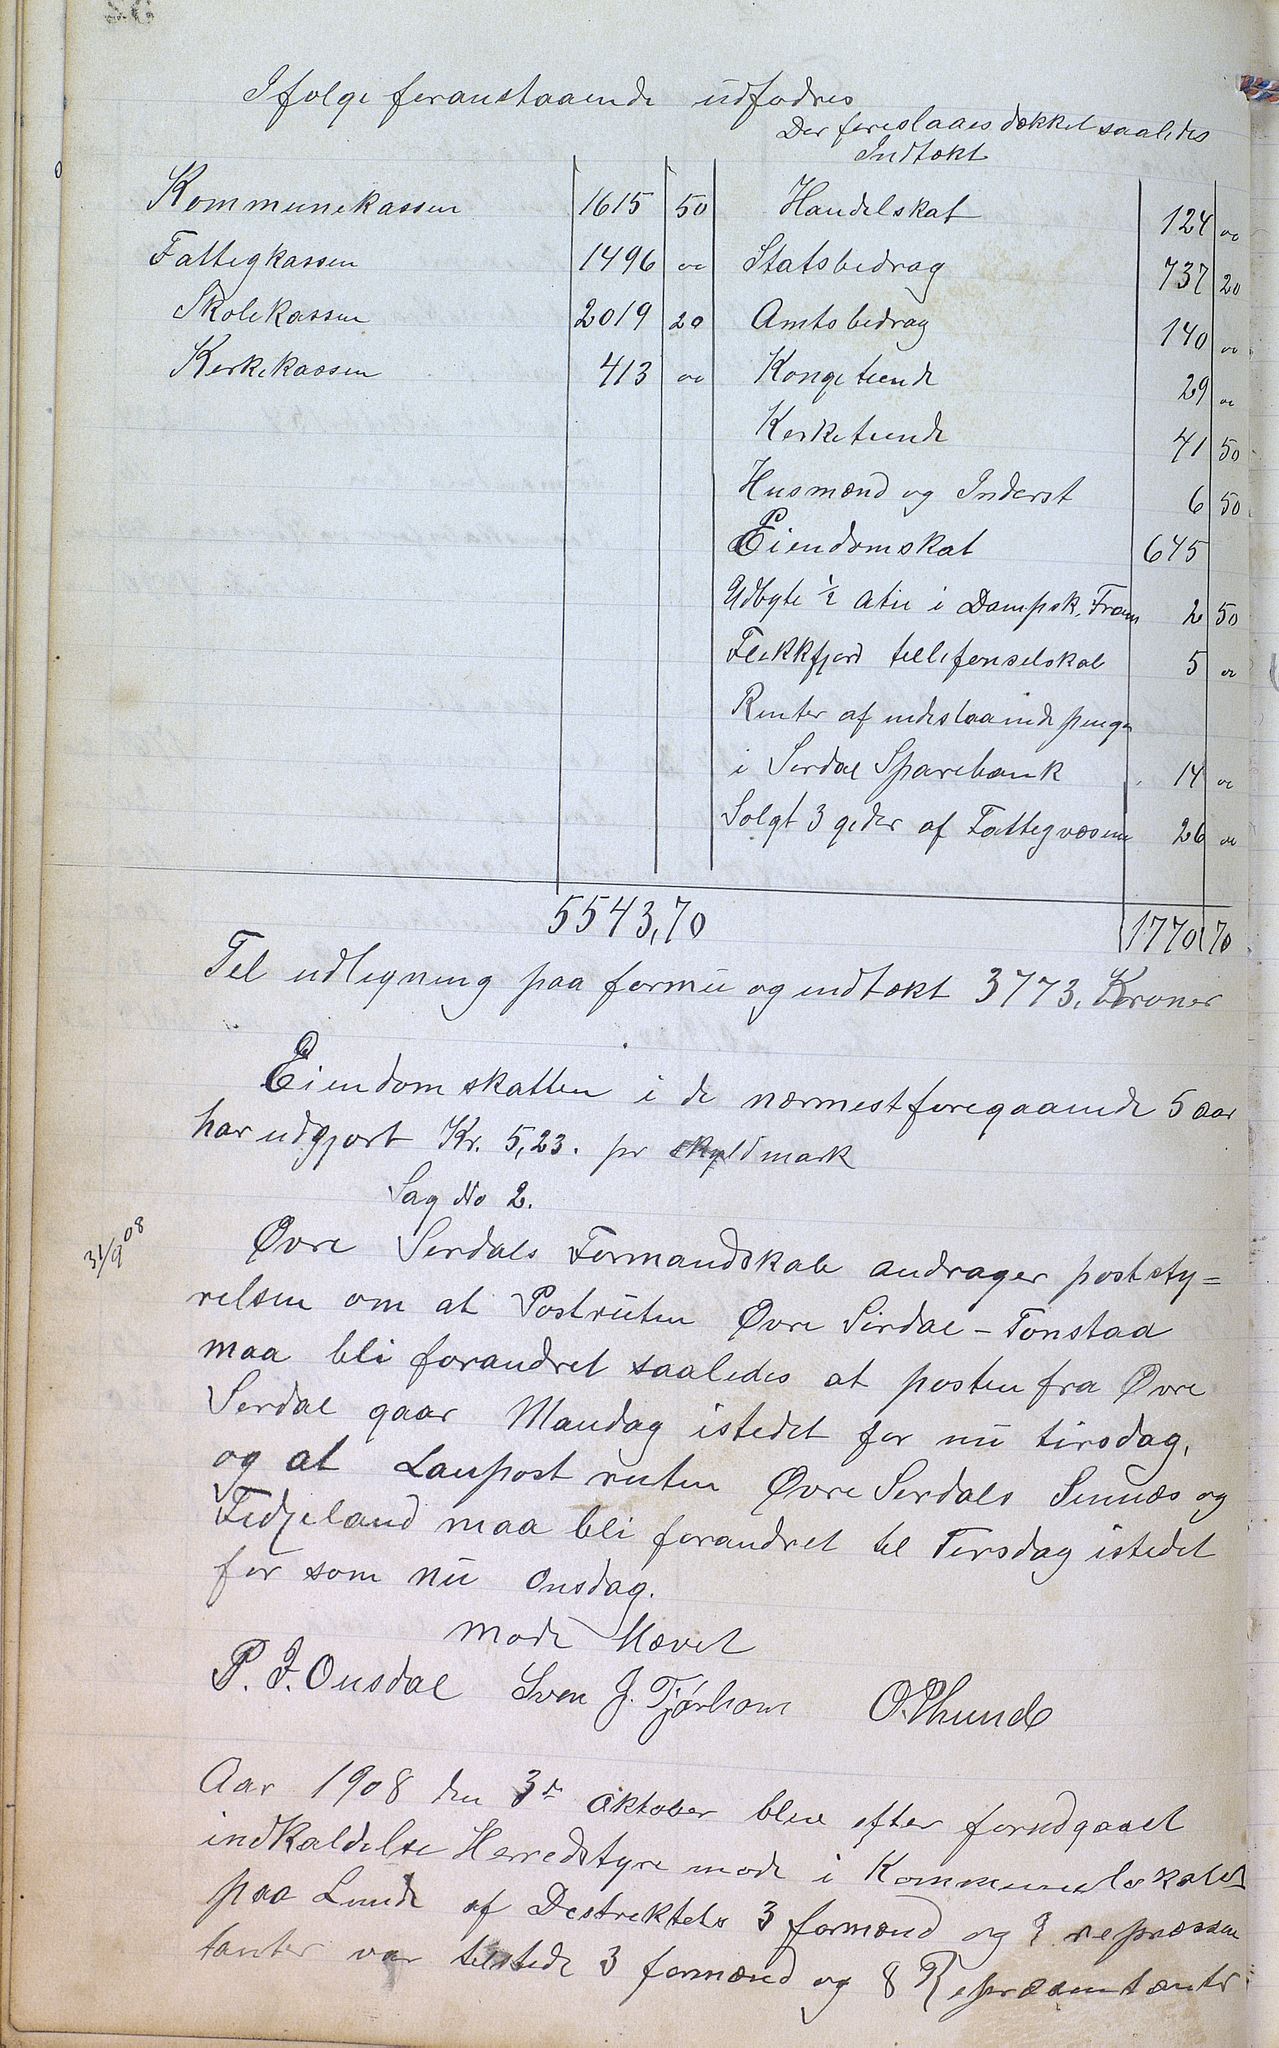 Ifølge foranstaaende udfodres
Der foreslaaes dækket saaledes
Indtækt
Kommunekassen 1615 50 Handelskat 124 00
Fattigkassen 1496 00 Statsbedrag 737 20
Skolekassen 2019 20 Amtsbedrag 140 00
Kerkekassen 413 00 Kongetiende 29 00
Kerketiende 41 50
Husmænd og Inderst 6 50
Eiendomskat 645
Udbyte 1/2 Atie i Dampsk. Fram 2 50
Flekkfjord tellefonselskab 5 00
Renter af indestaaende penge
i Serdal Sparebank 14 00
Solgt 3 geder af Fattigvæsenet 26 00
5543,70 1770 70
Tel udligning paa formue og indtækt 3773. Kroner
Eiendomskatten i de nærmestforegaaende 5 aar
har udgjort Kr. 5,23. pr skyldmark
Sag No 2.
31/9 08
Øvre Serdals Formandskab andrager poststy=
relsen om at Postruten Øvre Sirdal - Tonstad
maa bli forandret saaledes at posten fra Øvre
Serdal gaar Mandag istedet for nu tirsdag,
og at Lanpost ruten Øvre Serdals Sinnæs og
Fidjeland maa bli forandret til Tirsdag istedet
for som nu Onsdag.
møde Hævet
P. J. Ousdal Sven J. Tjørhom O. P. Lunde
Aar 1908 den 3de Oktober blev efter forudgaaet
indkaldelse Herredstyre møde i Kommunelokalet
paa Lunde af Destriktets 3 formænd og 9 repræsen
tanter var tilstede 3 formænd og 8 Repræsentanter